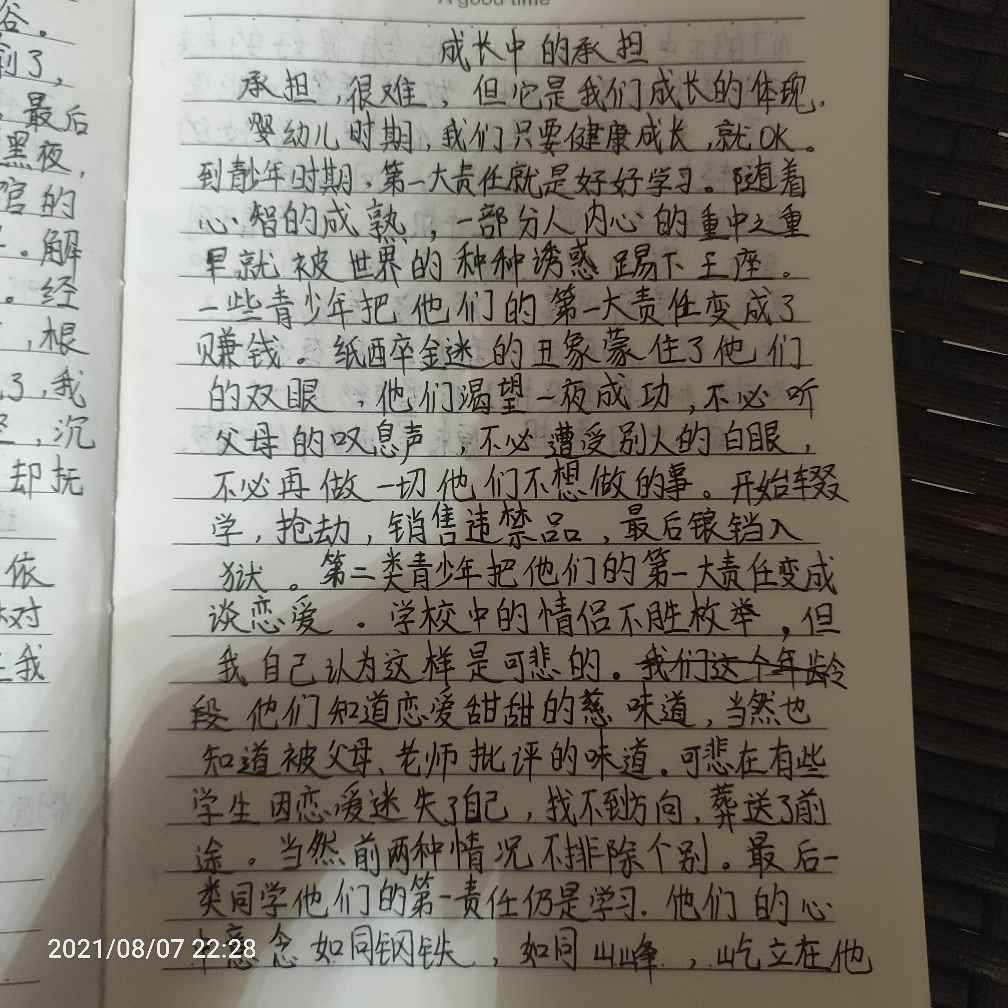 A good time
谷。
前了，
，最后
黑夜，
官的
。解
。经
，根
了，我
，沉
却抚
依
对
我
成长中的承担
承担，很难，但它是我们成长的体现，
婴幼儿时期，我们只要健康成长，就OK。
到青少年时期，第一大责任就是好好学习。随着
心智的成熟，一部分人内心的重中之重
早就被世界的种种诱惑踢下王座。
一些青少年把他们的第一大责任变成了
赚钱。纸西卒金迷的丑象蒙住了他们
的双眼，他们渴望一夜成功，不必听
父母的叹息声，不必遭受别人的白眼，
不必再做一切他们不想做的事。开始辍
学，抢劫，销售违禁品，最后锒铛入
狱。第二类青少年把他们的第一大责任变成
谈恋爱。学校中的情侣不胜枚举，但
我自己认为这样是可悲的。我们这个年龄
段他们知道恋爱甜甜的味道，当然也
知道被父母、老师批评的味道。可悲在有些
学生因恋爱迷失了自己，找不到方向，葬送了前
途。当然前两种情况不排除个别。最后一
类同学他们的第一责任仍是学习.他们的心
中意念如同钢铁，如同山峰，屹立在他
2021/08/07 22:28